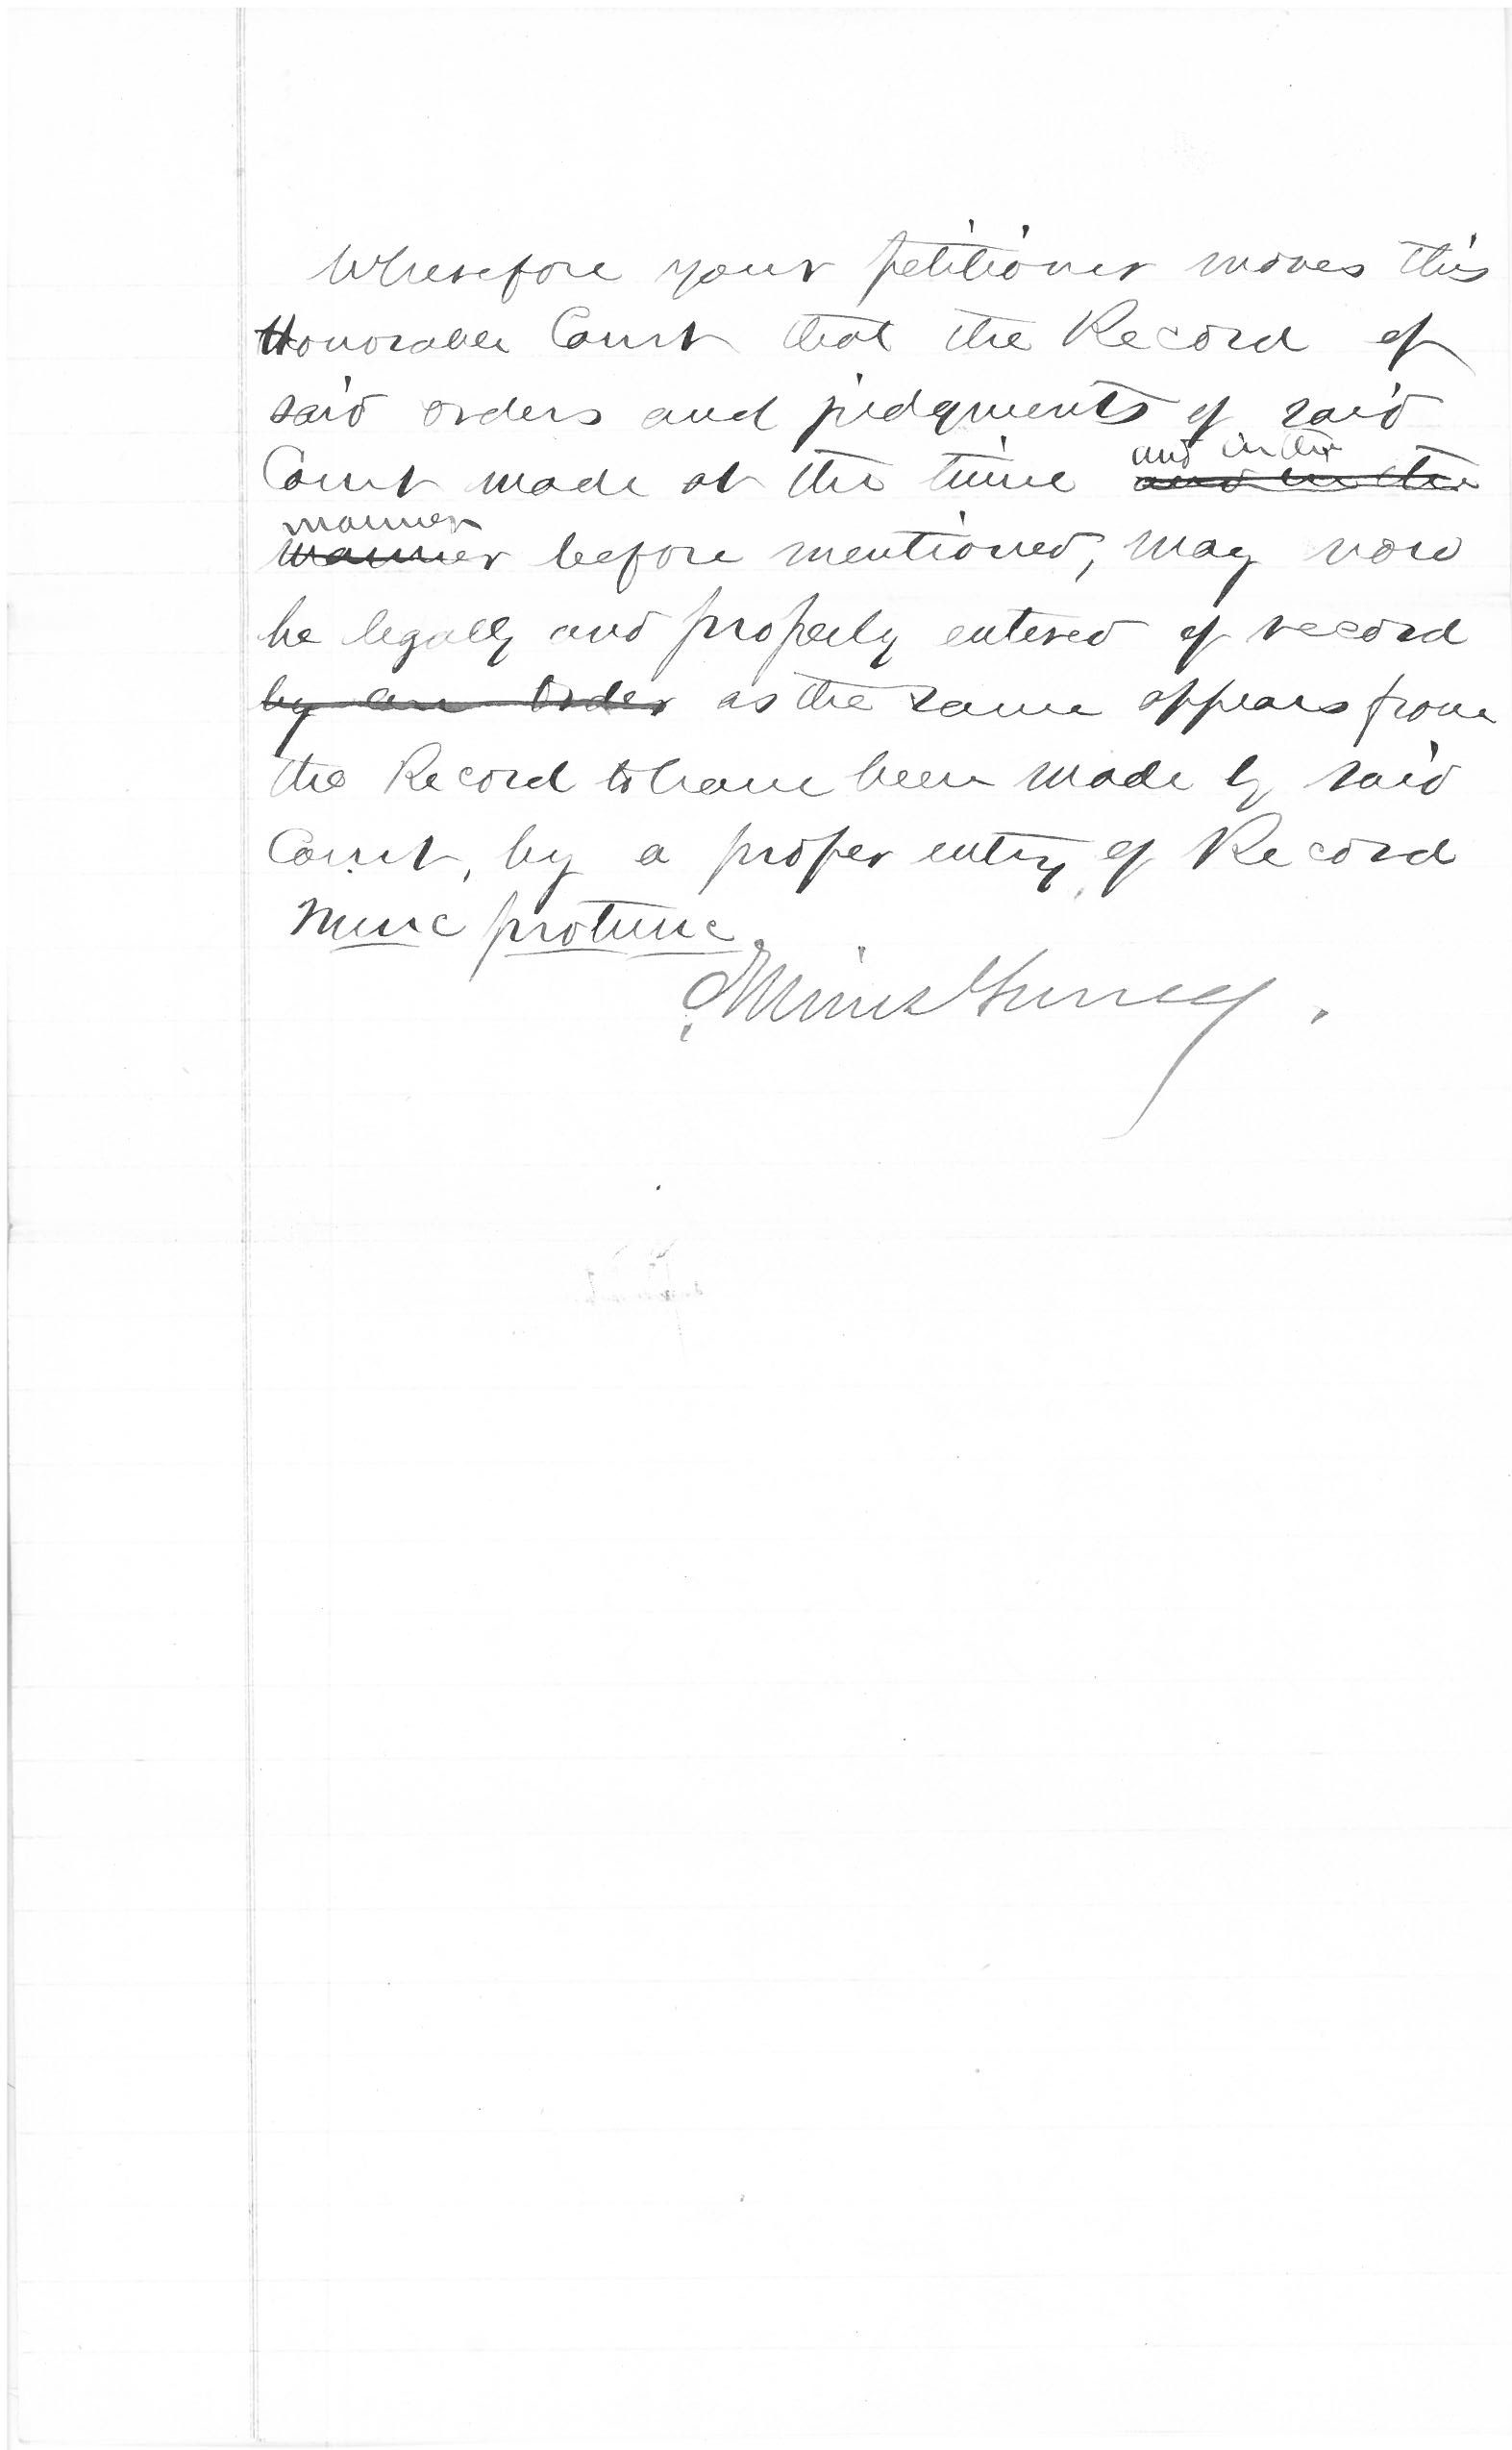 Wherefore your petitioner moves this
Honorable Court that the Record of
said orders and judgments of said
Court made at the time and in the
and in the
manner
manner before mentioned, may now
be legally and properly entered of record
by an Order as the same appears from
the Record to have been made by said
Court, by a proper entry of Record
nunc protunc.